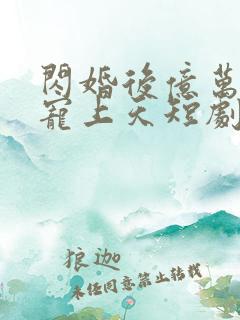 閃婚後億萬
寵上天短劇
狼迦
未任同意禁止转载